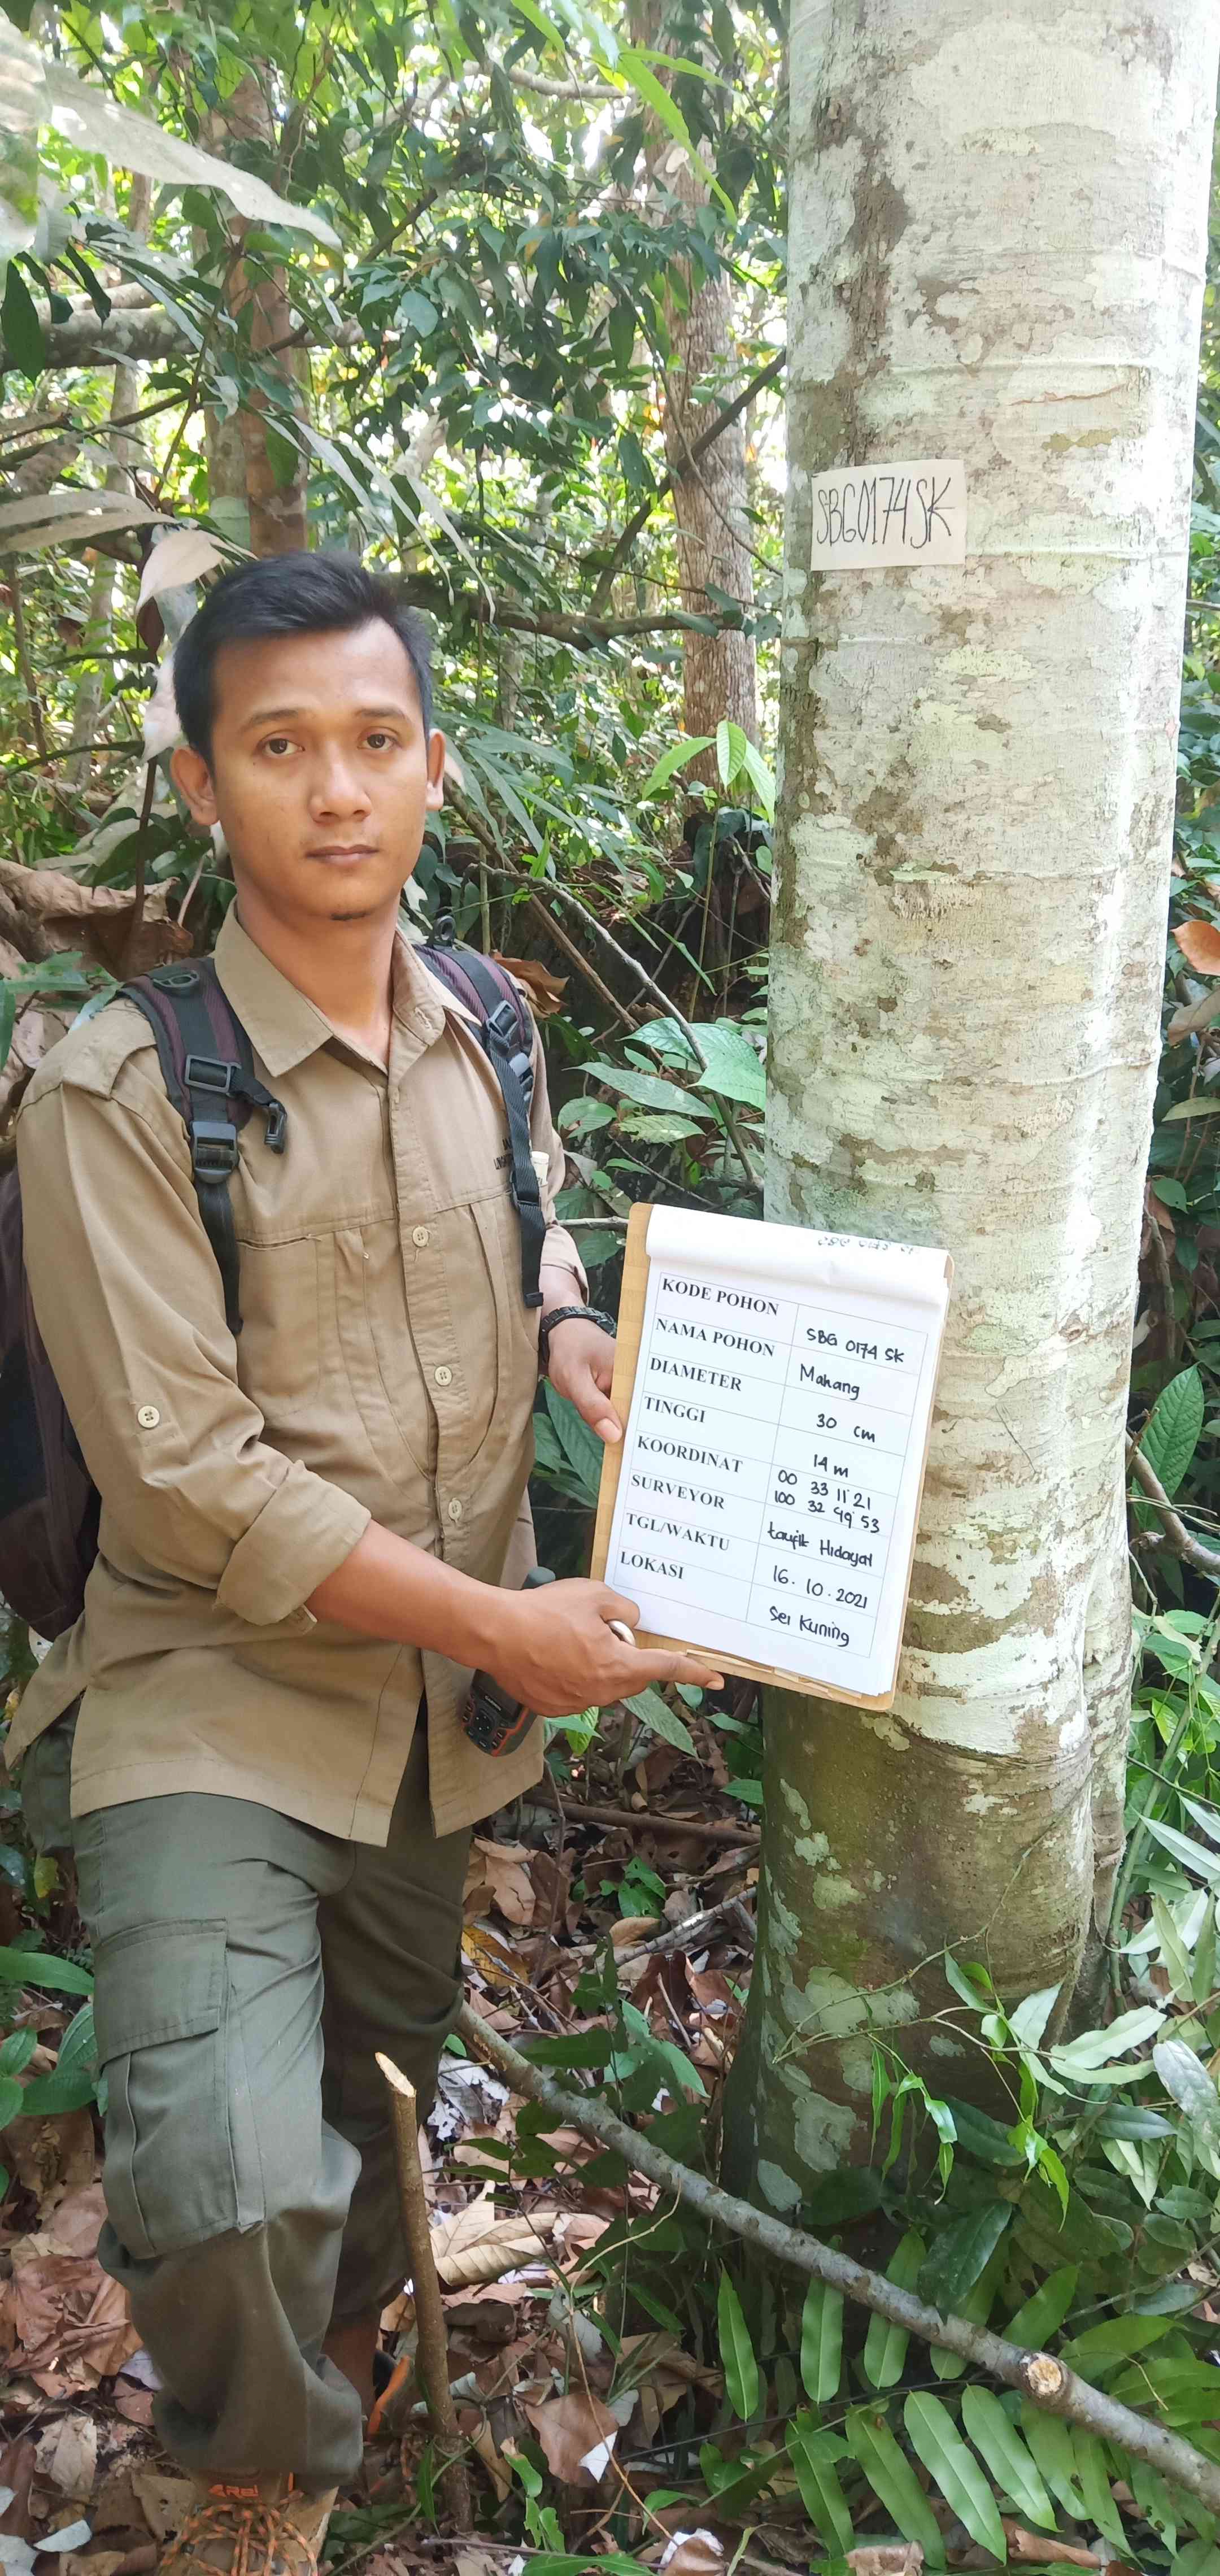 SBG0174SK
KODE POHON SBG 0174 SK
NAMA POHON Mahang
DIAMETER 30 cm
TINGGI 14 m
KOORDINAT 00 33 11' 21
100 32 49' 53
SURVEYOR taufik Hidayat
TGL/WAKTU 16. 10. 2021
LOKASI Sei Kuning